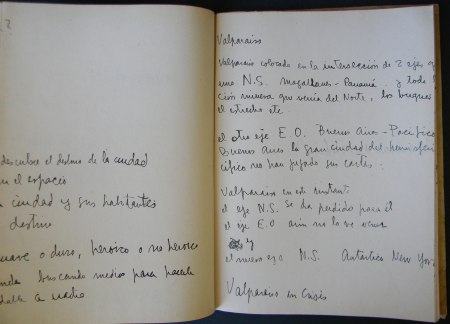 ?
descubre el destino de la ciudad
en el espacio
a ciudad y sus habitantes
destino
suave o duro, heroico o no heroico
anda buscando medios para hacerle
a nadie
Valparaíso
Valparaíso colocado en la intersección de 2 ejes
uno N.S. Magallanes-Panamá y toda
ción minera que venía del Norte, los buques
el estrecho etc
el otro eje E.O. Buenos Aires-Pacífico
Buenos Aires la gran ciudad del hemisferi
cífico no han jugado sus cartas.
Valparaíso en este instante
el eje N.S. se ha perdido para él
el eje E.O aún no lo ve
y
el nuevo eje N.S. Antártico New York
Valparaíso en Crisis